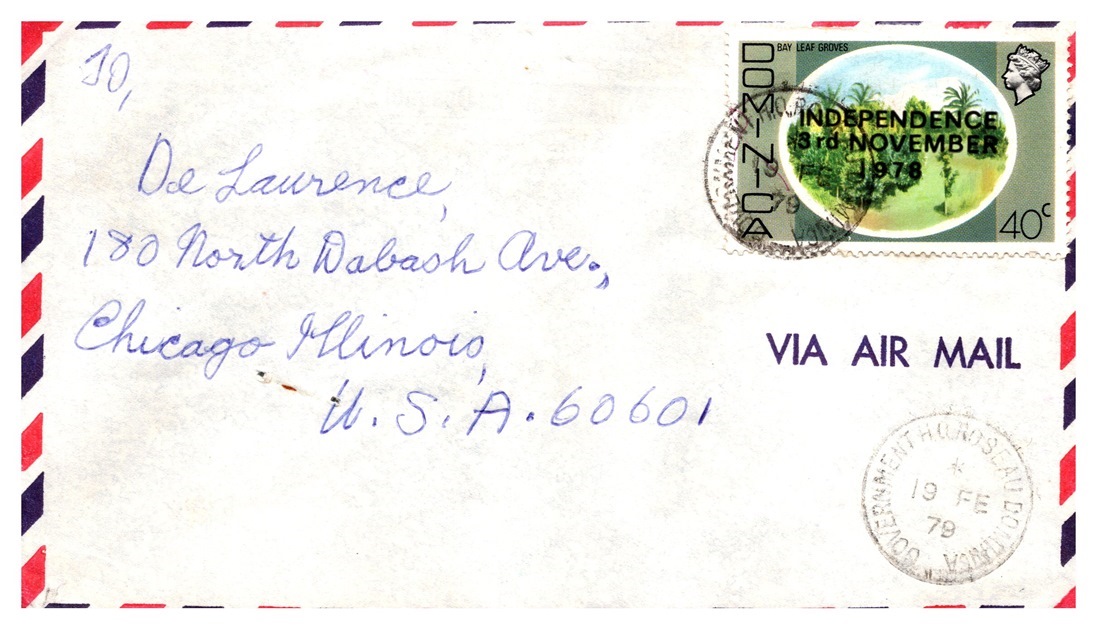 To,
De Laurence,
180 North Wabash Ave.,
Chicago Illinois,
U. S. A. 60601
DOMINICA
BAY LEAF GROVES
INDEPENDENCE
3rd NOVEMBER
1978
40c
19 FE
79
VIA AIR MAIL
GOVERNMENT H.Q. ROSEAU DOMINICA
19 FE
79